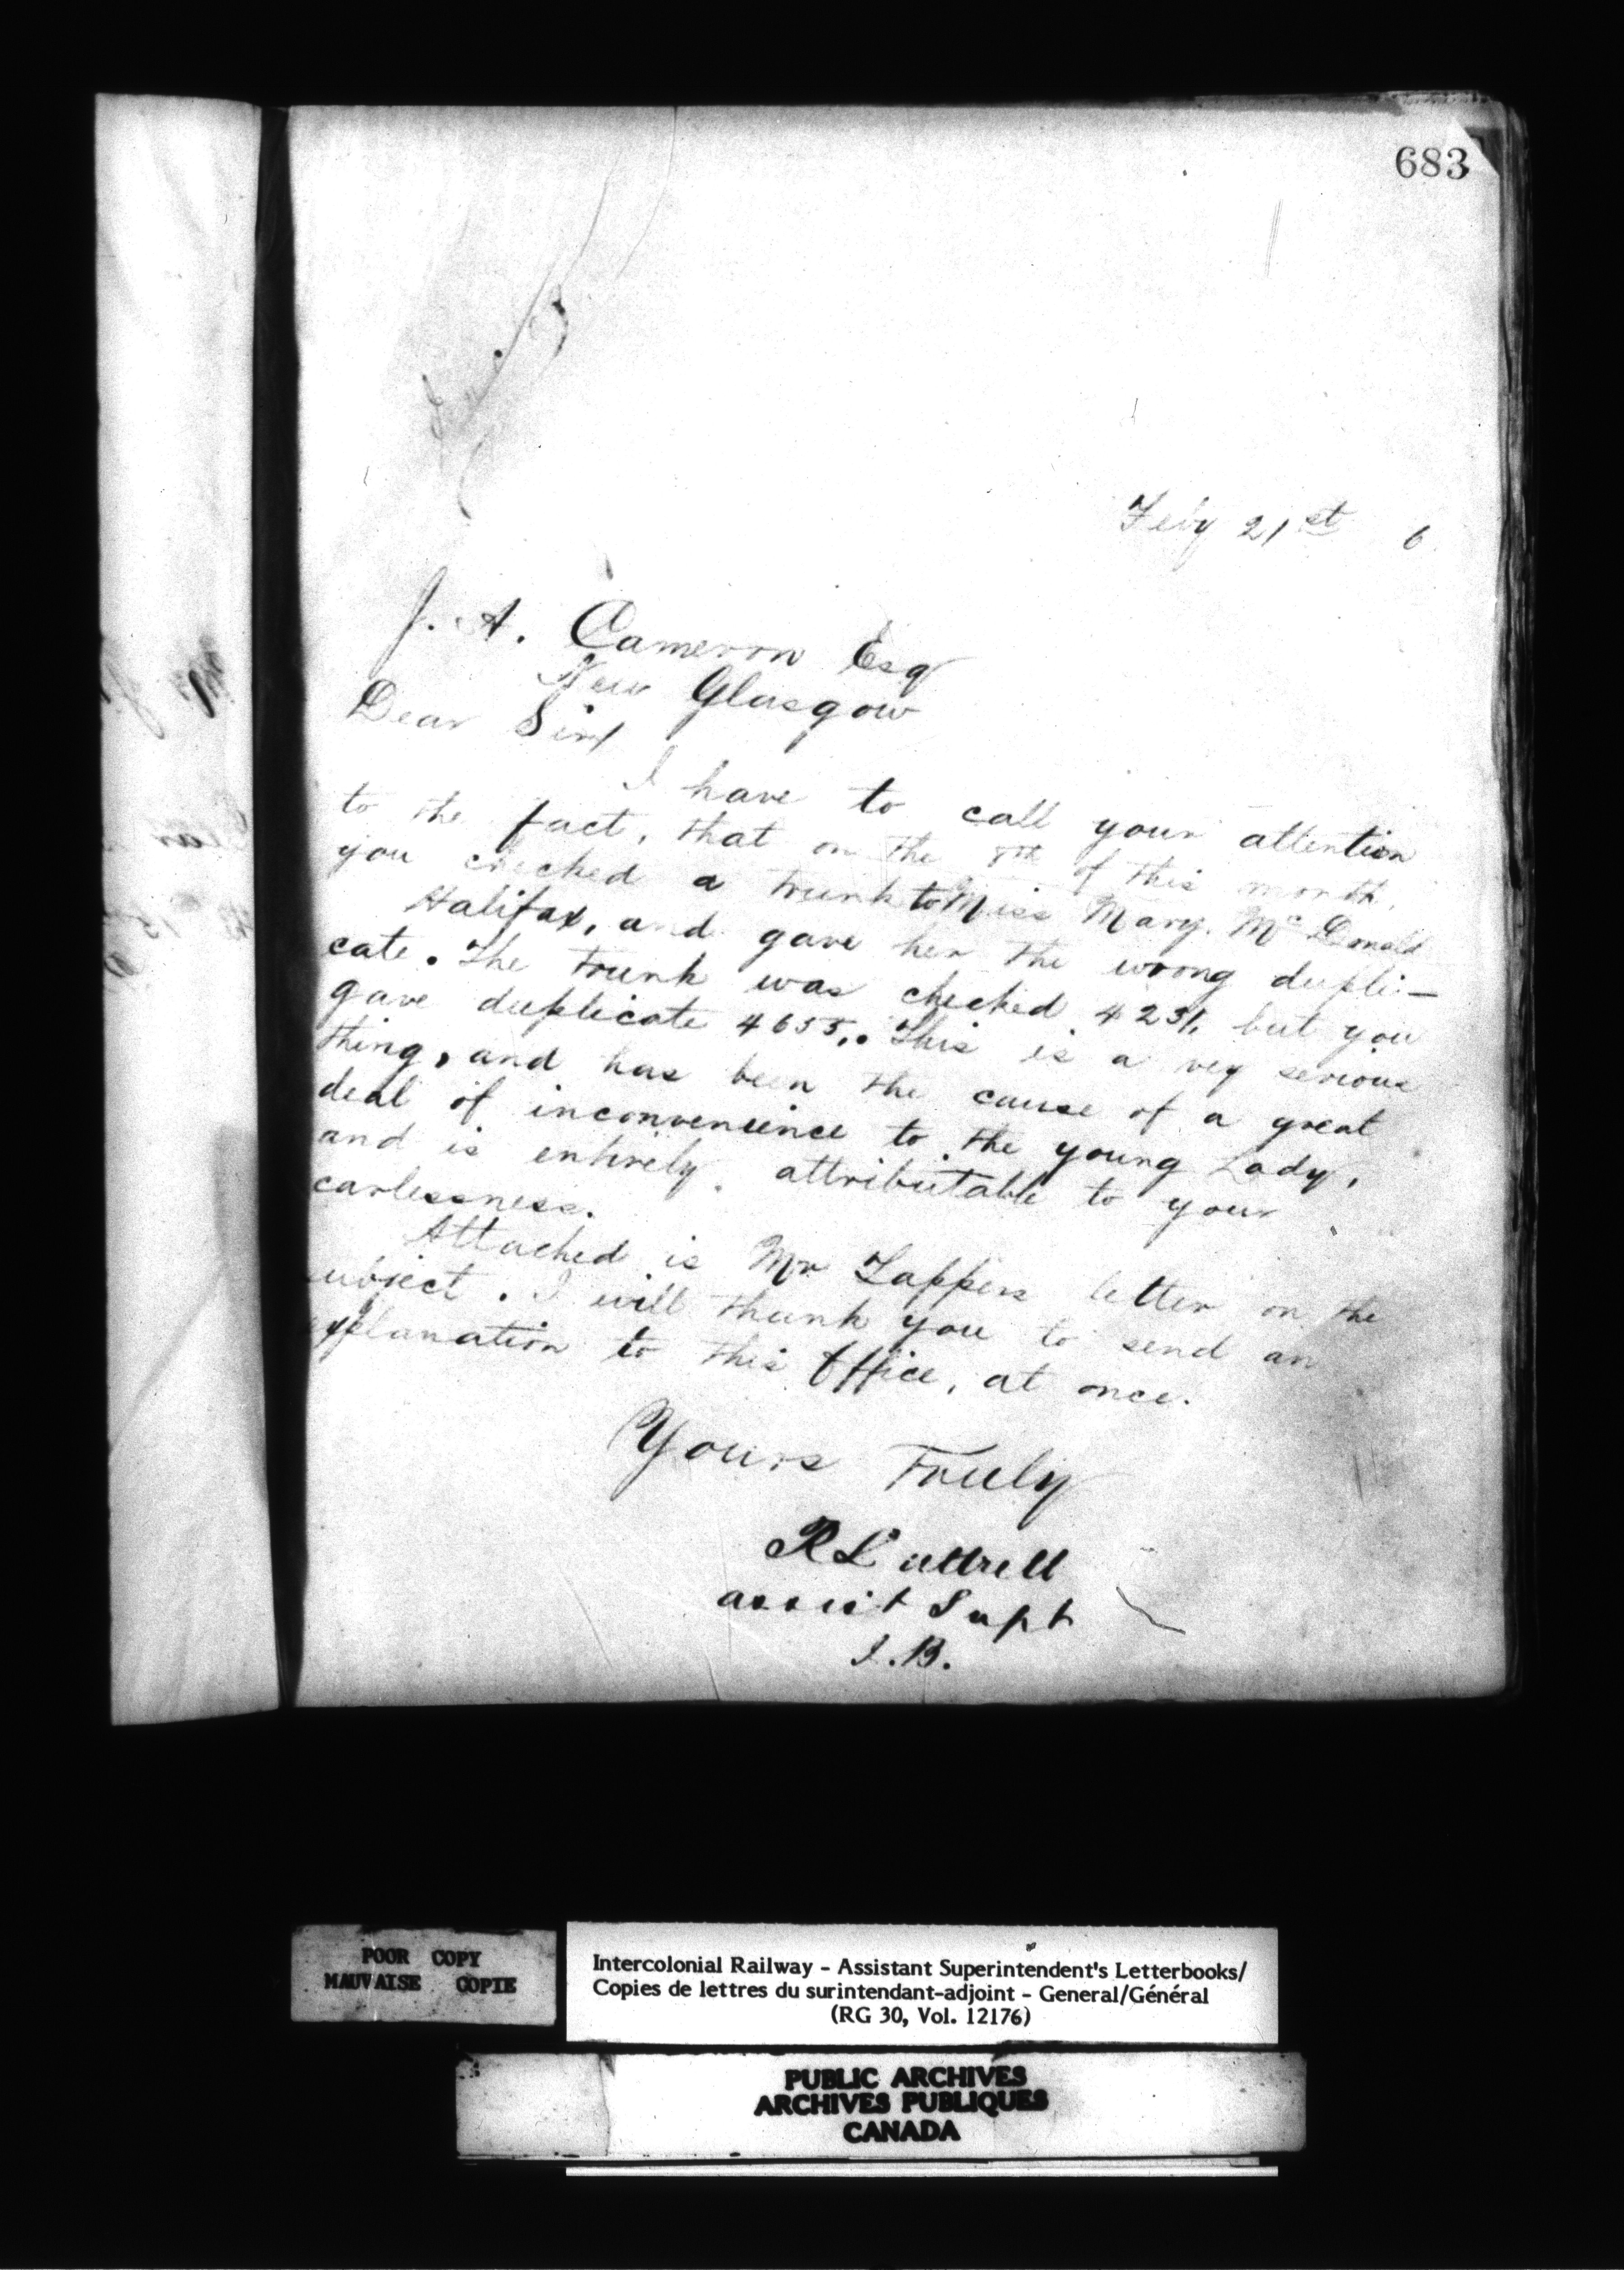 683
Feby 21st 6
J. A. Cameron Esq
New Glasgow
Dear Sir
I have to call your attention
to the fact, that on the 8th of this month,
you checked a trunk to Miss Mary. Mc Donald
Halifax, and gave her the wrong dupli-
cate. The trunk was checked 4231, but you
gave duplicate 4655. This is a vey serious
thing, and has been the cause of a great
deal of inconvenience to the young Lady,
and is entirely attributable to your
carlessness.
Attached is Mr Tappers letter on the
subject. I will thank you to send an
explanation to this Office, at once.
Yours Truly
R Luttrell
assist Supt
J.B.
POOR COPY
MAUVAISE COPIE
Intercolonial Railway - Assistant Superintendent's Letterbooks/
Copies de lettres du surintendant-adjoint - General/Général
(RG 30, Vol. 12176)
PUBLIC ARCHIVES
ARCHIVES PUBLIQUES
CANADA